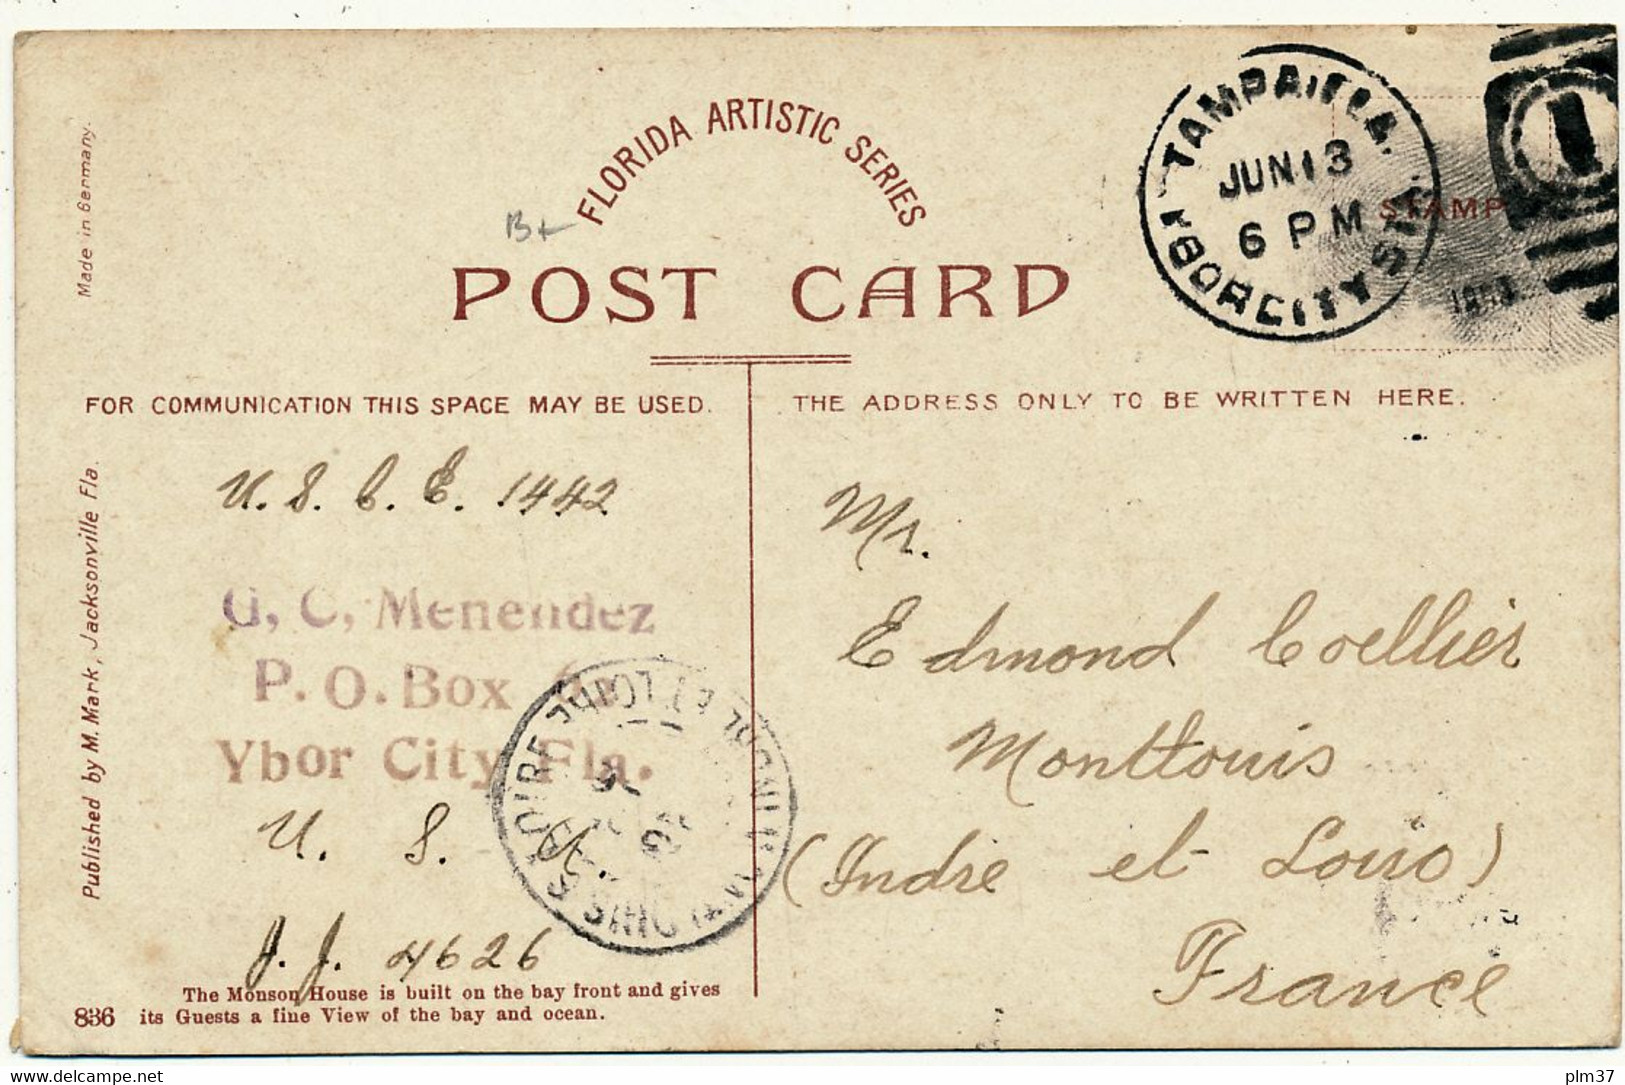 FLORIDA ARTISTIC SERIES
B+
POST CARD
TAMPA, FLA.
JUN 13
6 PM
YBOR CITY STA.
STAMP
Made in Germany.
Published by M. Mark, Jacksonville Fla.
FOR COMMUNICATION THIS SPACE MAY BE USED.
U. S. C. E. 1442
G. C. Menendez
P. O. Box
Ybor City Fla.
U. S. A.
J. J. 4626
The Monson House is built on the bay front and gives
836 its Guests a fine View of the bay and ocean.
THE ADDRESS ONLY TO BE WRITTEN HERE.
Mr.
Edmond Coellier
Monttouis
(Indre et Loire)
France
INDRE ET LOIRE
www.delcampe.net
plm37